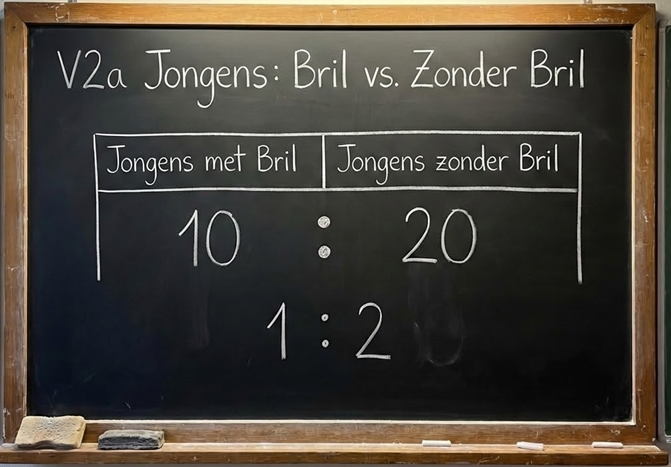 V2a Jongens: Bril vs. Zonder Bril
Jongens met Bril Jongens zonder Bril
10 : 20
1 : 2